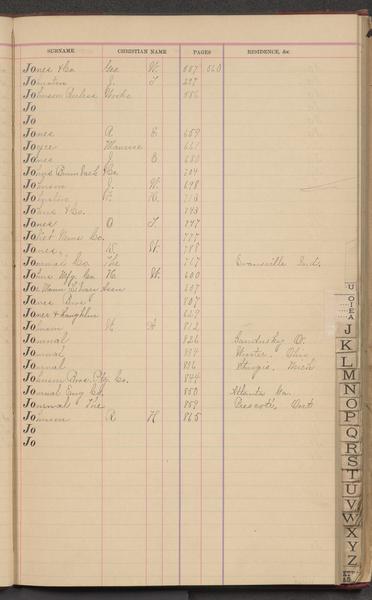 SURNAME CHRISTIAN NAME PAGES RESIDENCE, &c
Jones & Co Geo W. 557 560
Johnston J. T 297
Johnson Works 556
Jo
Jo
Jones A E 659
Joyce Maurice 667
Jones J. E 680
Johns & Co. 704
Johnson J. W. 698
Johnston H. 713
Johns & Co. 743
Jones O J. 747
Joliet News Co. 777
Jones W. 788
Journal Co. The 717 Evansville Ind.
Johns Mfg Co H. W. 600
Jos 507
Jones Bros 807
Jones & Laughlin 629
Johnson A 812
Journal 826 Sandusky O.
Journal 834 Wooster, Ohio
Journal 836 Sturgis. Mich
Johnson Bros. Co. 844
Journal Co. 850 Atlanta Ga.
Journal The 859 Prescott, Ont
Johnson R H 865
Jo
Jo
J
K
L
M
N
O
P
Q
R
S
T
U
V
W
X
Y
Z